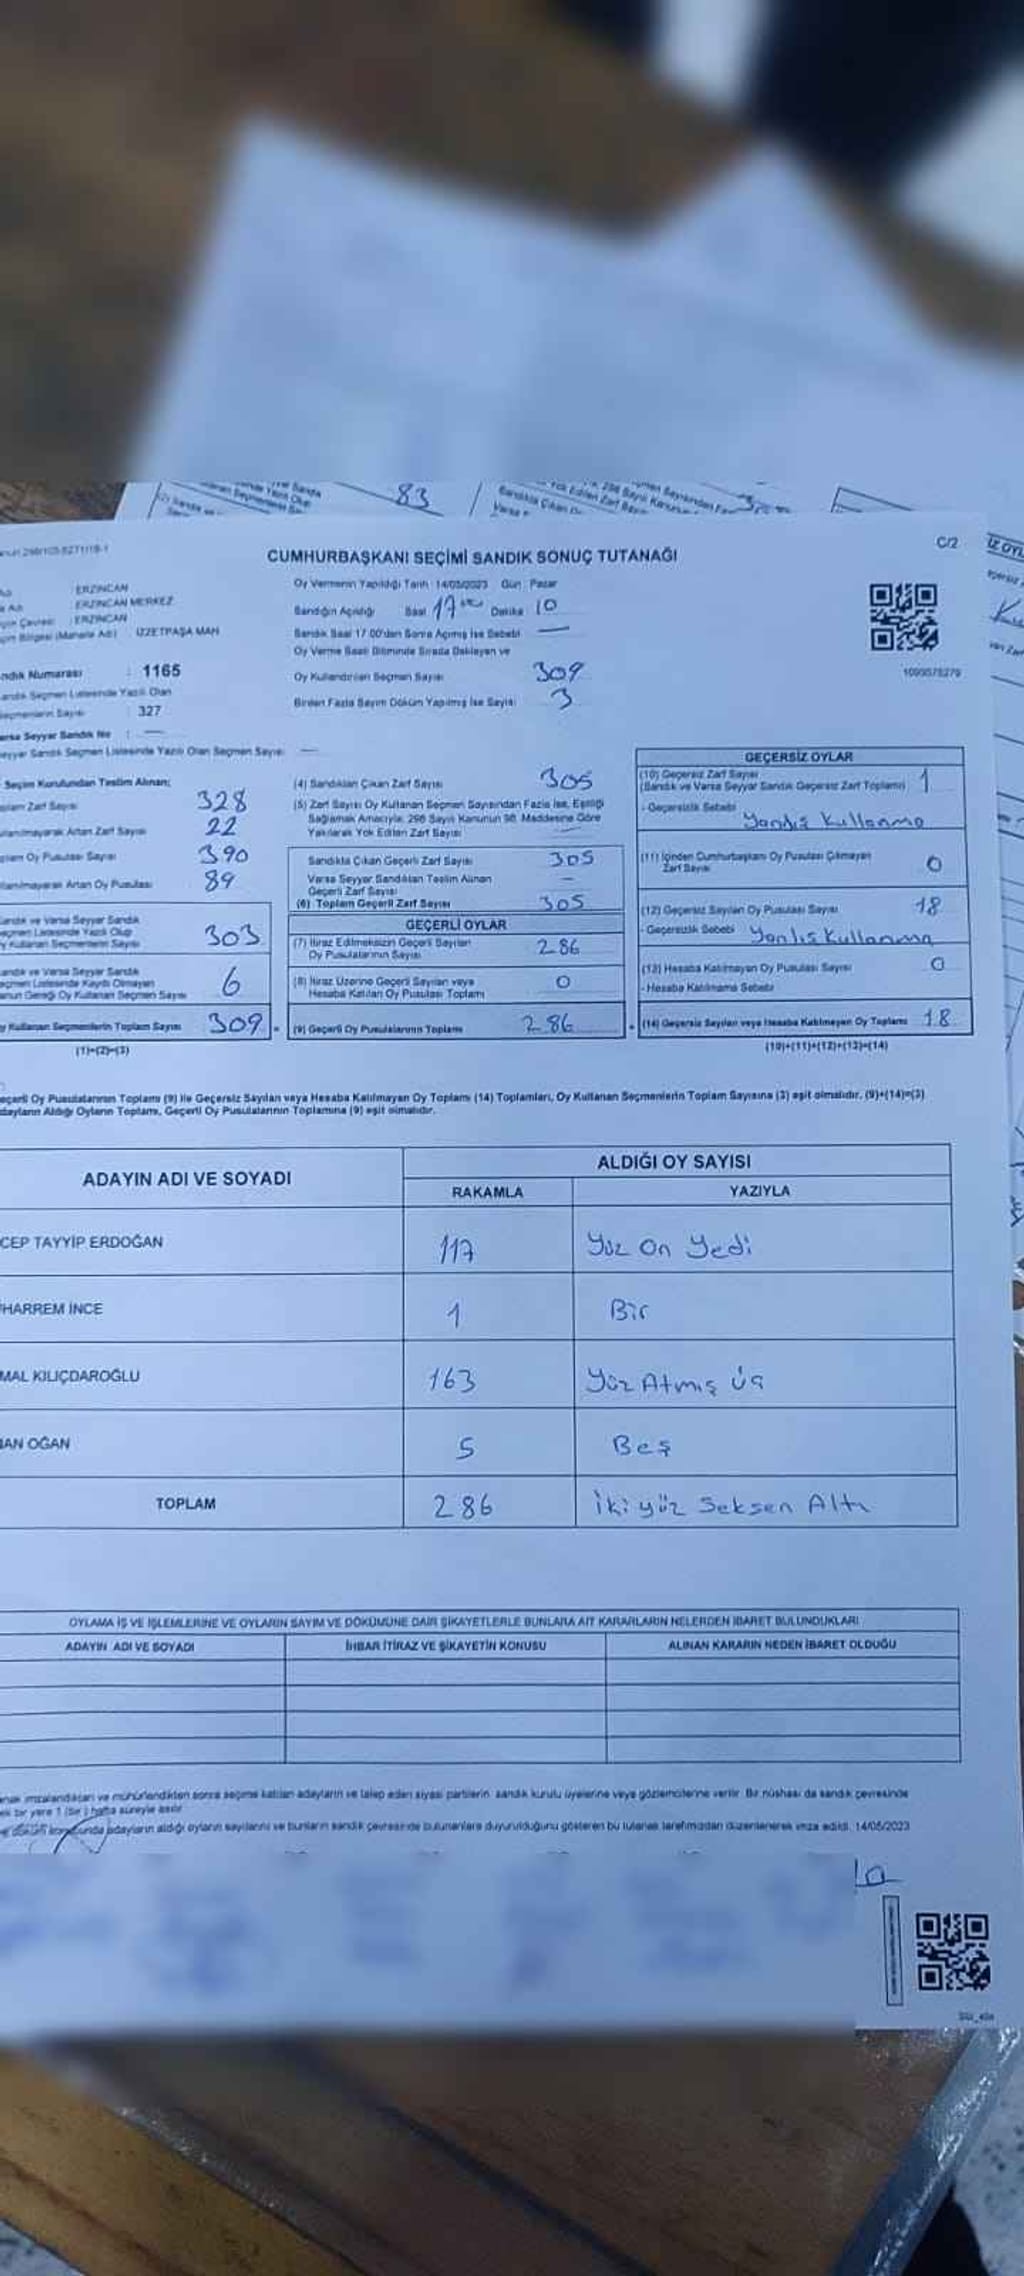 83
CUMHURBAŞKANI SEÇİMİ SANDIK SONUÇ TUTANAĞI
C/2
ERZİNCAN
Oy Vermenin Yapıldığı Tarih 14/05/2023 Gün Pazar
ERZİNCAN MERKEZ
Sandığın Açıldığı Saat 17 Dakika 10
ERZİNCAN
(Mahalle Adı) İZZETPAŞA MAH
Sandık Saat 17.00'dan Sonra Açılmış İse Sebebi —
Oy Verme Saati Bitiminde Sırada Bekleyen ve
Oy Kullandırılan Seçmen Sayısı 309
1165
Birden Fazla Sayım Döküm Yapılmış İse Sayısı 3
327
Seyyar Sandık No : —
Sandık Seçmen Listesinde Yazılı Olan Seçmen Sayısı —
Seçim Kurulundan Teslim Alınan;
Zarf Sayısı 328
Artan Zarf Sayısı 22
Oy Pusulası Sayısı 390
Artan Oy Pusulası 89
ve Varsa Seyyar Sandık
Listesinde Yazılı Olup
Kullanan Seçmenlerin Sayısı 303
ve Varsa Seyyar Sandık
Listesinde Kaydı Olmayan
Gereği Oy Kullanan Seçmen Sayısı 6
Kullanan Seçmenlerin Toplam Sayısı 309
(1)+(2)=(3)
(4) Sandıktan Çıkan Zarf Sayısı 305
(5) Zarf Sayısı Oy Kullanan Seçmen Sayısından Fazla İse, Eşitliği
Sağlamak Amacıyla; 298 Sayılı Kanunun 98. Maddesine Göre
Yakılarak Yok Edilen Zarf Sayısı —
Sandıkta Çıkan Geçerli Zarf Sayısı 305
Varsa Seyyar Sandıktan Teslim Alınan
Geçerli Zarf Sayısı —
(6) Toplam Geçerli Zarf Sayısı 305
GEÇERLİ OYLAR
(7) İtiraz Edilmeksizin Geçerli Sayılan
Oy Pusulalarının Sayısı 286
(8) İtiraz Üzerine Geçerli Sayılan veya
Hesaba Katılan Oy Pusulası Toplamı 0
(9) Geçerli Oy Pusulalarının Toplamı 286
GEÇERSİZ OYLAR
(10) Geçersiz Zarf Sayısı
(Sandık ve Varsa Seyyar Sandık Geçersiz Zarf Toplamı) 1
- Geçersizlik Sebebi Yanlış Kullanma
(11) İçinden Cumhurbaşkanı Oy Pusulası Çıkmayan
Zarf Sayısı 0
(12) Geçersiz Sayılan Oy Pusulası Sayısı 18
- Geçersizlik Sebebi Yanlış Kullanma
(13) Hesaba Katılmayan Oy Pusulası Sayısı 0
- Hesaba Katılmama Sebebi
(14) Geçersiz Sayılan veya Hesaba Katılmayan Oy Toplamı 18
(10)+(11)+(12)+(13)=(14)
Oy Pusulalarının Toplamı (9) ile Geçersiz Sayılan veya Hesaba Katılmayan Oy Toplamı (14) Toplamları, Oy Kullanan Seçmenlerin Toplam Sayısına (3) eşit olmalıdır. (9)+(14)=(3)
Aldığı Oyların Toplamı, Geçerli Oy Pusulalarının Toplamına (9) eşit olmalıdır.
ADAYIN ADI VE SOYADI
ALDIĞI OY SAYISI
RAKAMLA
YAZIYLA
CEP TAYYİP ERDOĞAN 117 Yüz On Yedi
HARREM İNCE 1 Bir
MAL KILIÇDAROĞLU 163 Yüz Atmış Üç
AN OĞAN 5 Beş
TOPLAM 286 İki yüz Seksen Altı
OYLAMA İŞ VE İŞLEMLERİNE VE OYLARIN SAYIM VE DÖKÜMÜNE DAİR ŞİKAYETLERLE BUNLARA AİT KARARLARIN NELERDEN İBARET BULUNDUKLARI
ADAYIN ADI VE SOYADI
İHBAR İTİRAZ VE ŞİKAYETİN KONUSU
ALINAN KARARIN NEDEN İBARET OLDUĞU
imzalandıktan ve mühürlendikten sonra seçime katılan adayların ve talep eden siyasi partilerin sandık kurulu üyelerine veya gözlemcilerine verilir. Bir nüshası da sandık çevresinde
bir yere 1 (bir) hafta süreyle asılır
adayların aldığı oyların sayılarını ve bunların sandık çevresinde bulunanlara duyurulduğunu gösteren bu tutanak tarafımızdan düzenlenerek imza edildi. 14/05/2023